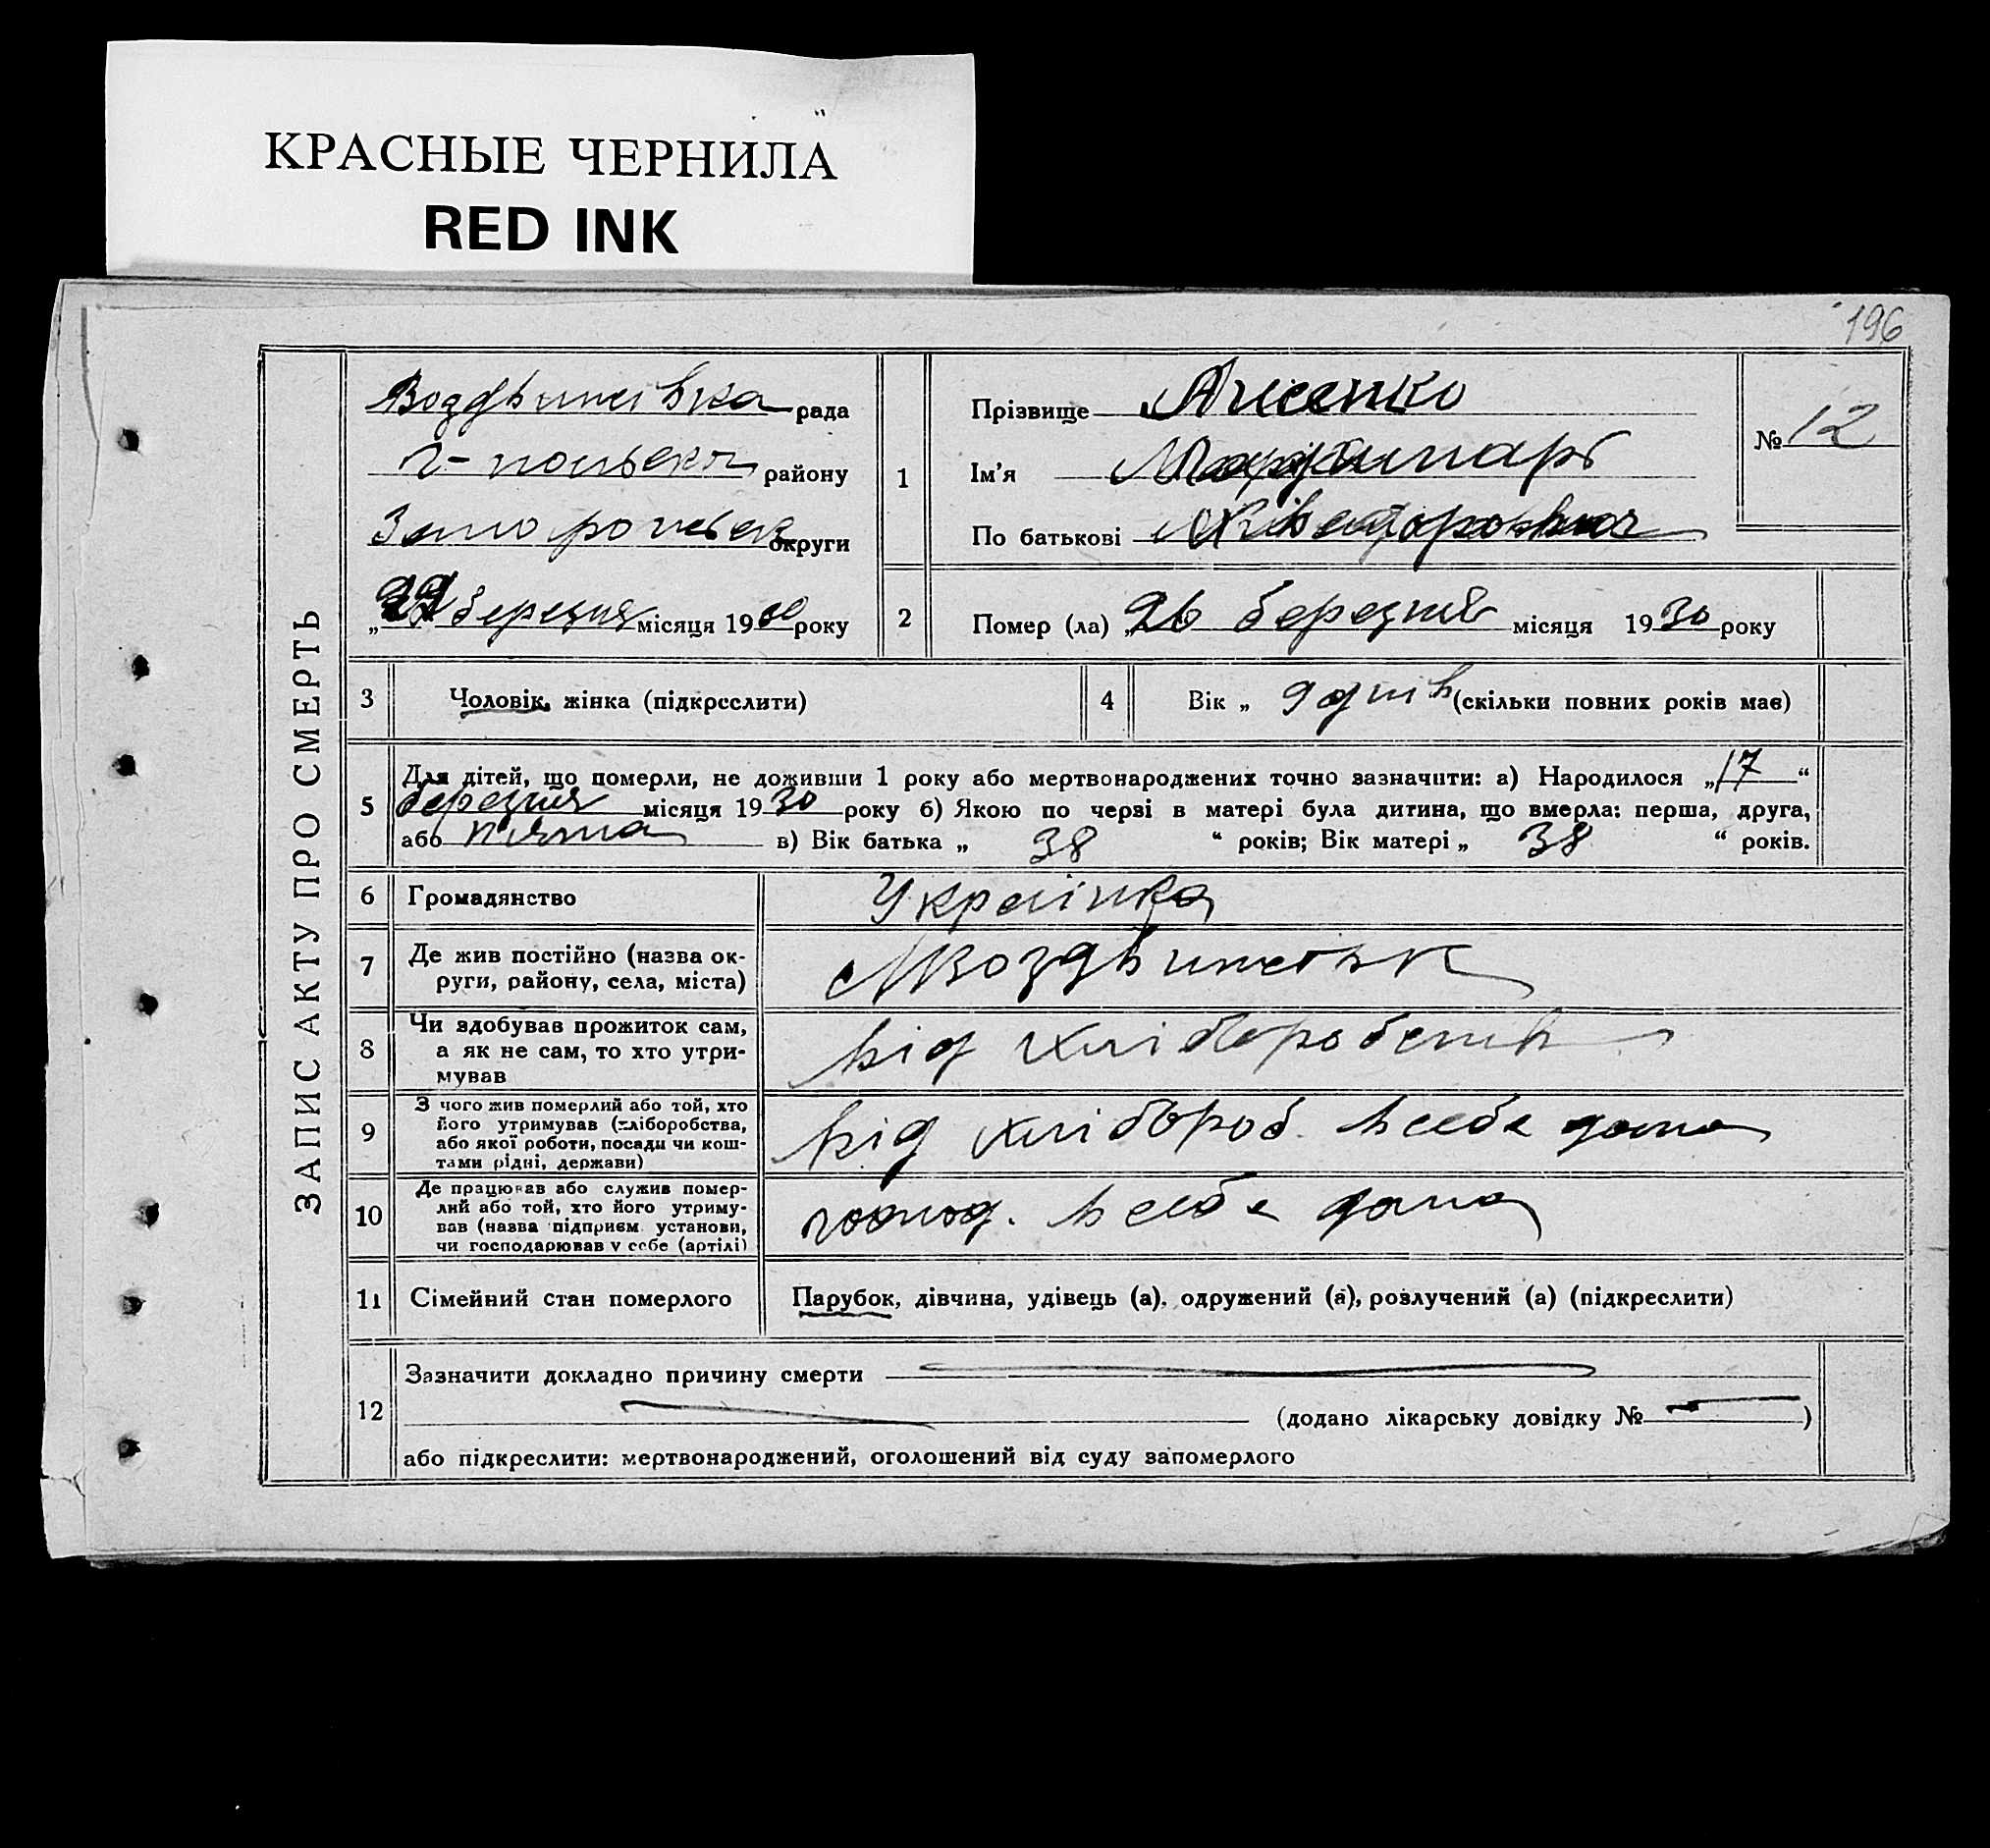 КРАСНЫЕ ЧЕРНИЛА
RED INK
196
ЗАПИС АКТУ ПРО СМЕРТЬ
Воздвижівка рада
району
округи
березня місяця 1930 року
1
Прізвище Лисенко
Ім'я
По батькові
№ 12
2
Помер (ла) „26 березня місяця 1930 року
3
Чоловік, жінка (підкреслити)
4
Вік „ 9 днів (скільки повних років має)
5
Для дітей, що померли, не доживши 1 року або мертвонароджених точно зазначити: а) Народилося „17“
березня місяця 1930 року б) Якою по черві в матері була дитина, що вмерла: перша, друга,
або пята в) Вік батька „ 38 “ років; Вік матері „ 38 “ років.
6
Громадянство
Українка
7
Де жив постійно (назва ок-
руги, району, села, міста)
8
Чи здобував прожиток сам,
а як не сам, то хто утри-
мував
від
9
З чого жив померлий або той, хто
його утримував (хліборобства,
або якої роботи, посади чи кош-
тами рідні, держави)
від хлібороб. в себе дома
10
Де працював або служив помер-
лий або той, хто його утриму-
вав (назва підприєм. установи,
чи господарював у себе (артілі)
господ. в себе дома
11
Сімейний стан померлого
Парубок, дівчина, удівець (а), одружений (а), розлучений (а) (підкреслити)
12
Зазначити докладно причину смерти
(додано лікарську довідку № )
або підкреслити: мертвонароджений, оголошений від суду запомерлого